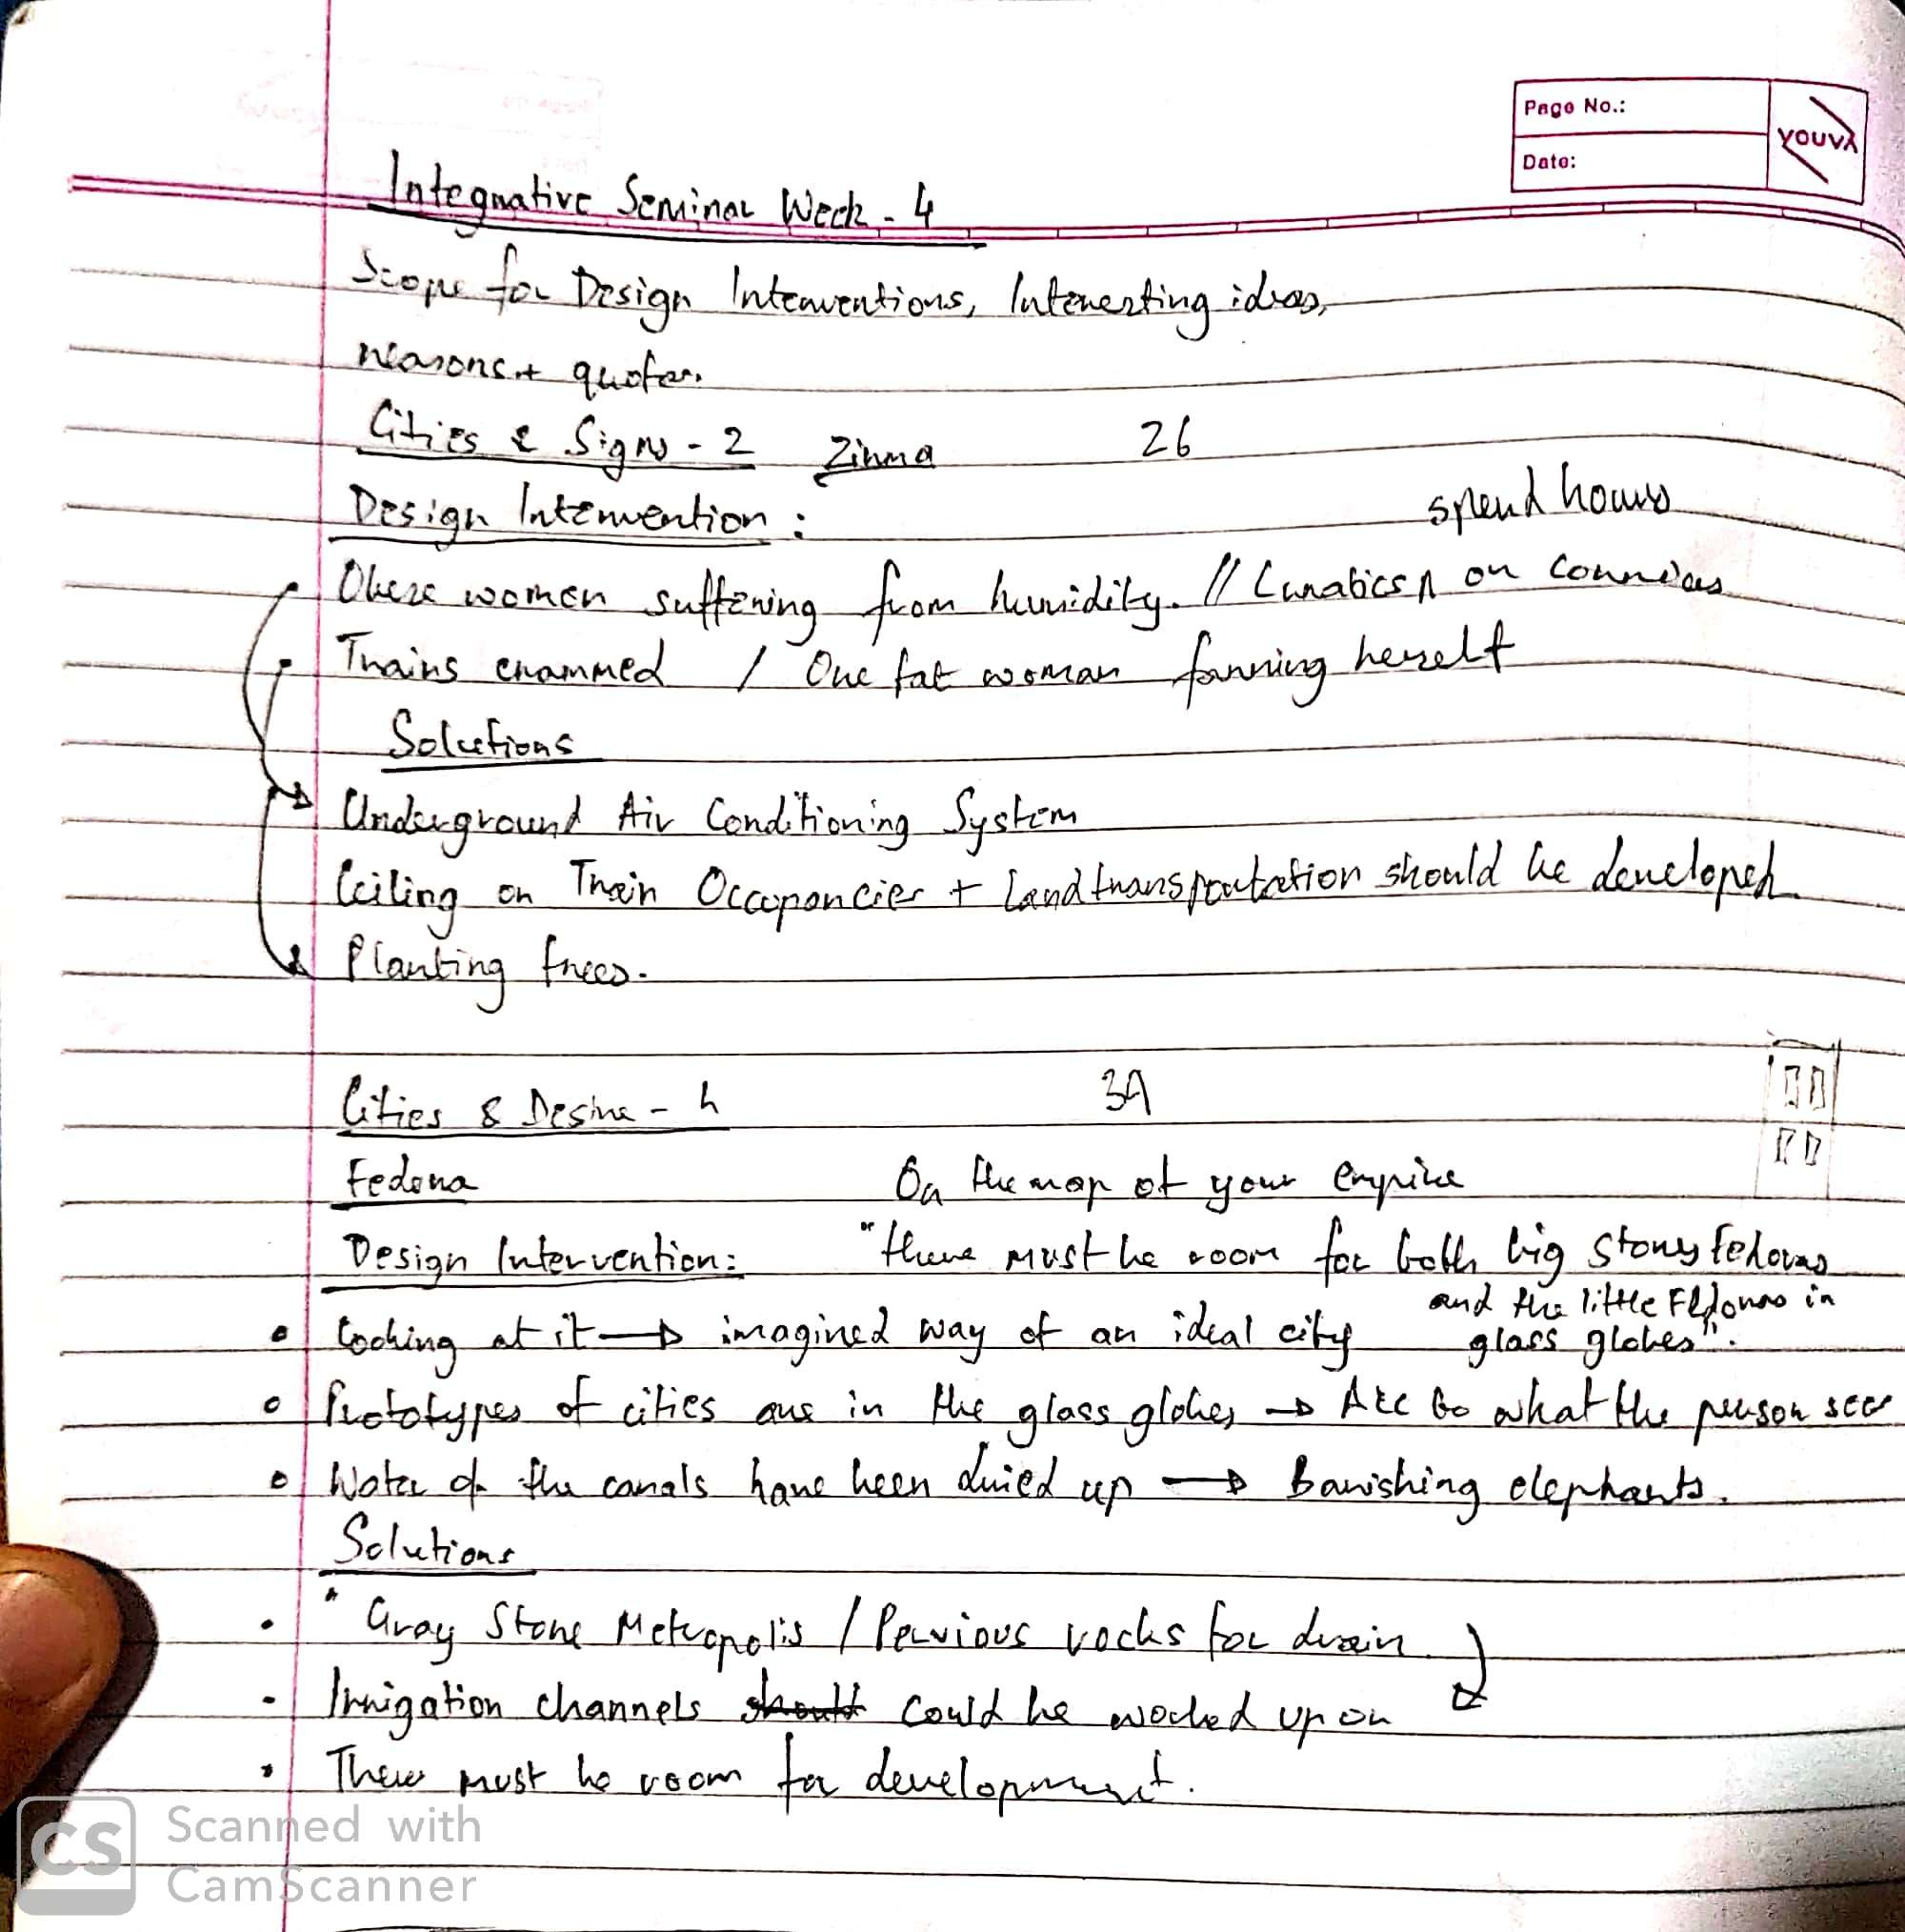 Page No.:
Date:
YOUVA
Integrative Seminar Week - 4
Scope for Design Interventions, Interesting ideas,
reasons + quotes.
Cities & Signs - 2 Zirma 26
Design Intervention :
spend hours
Obese women suffering from humidity. // Lunatics ʌ on cornices
Trains crammed / One fat woman fanning herself
Solutions
Underground Air Conditioning System
Ceiling on Train Occupancies + Land transportation should be developed
Planting trees.
Cities & Desire - 4
Fedora On the map of your empire
Design Intervention: "there must be room for both big stony Fedoras
and the little Fedoras in
glass globes".
Looking at it → imagined way of an ideal city
Prototypes of cities are in the glass globes → Acc to what the person sees
Water of the canals have been dried up → Banishing elephants.
Solutions
" Gray Stone Metropolis / Pervious rocks for drain
Irrigation channels should could be worked upon
There must be room for development.
CS Scanned with
CamScanner